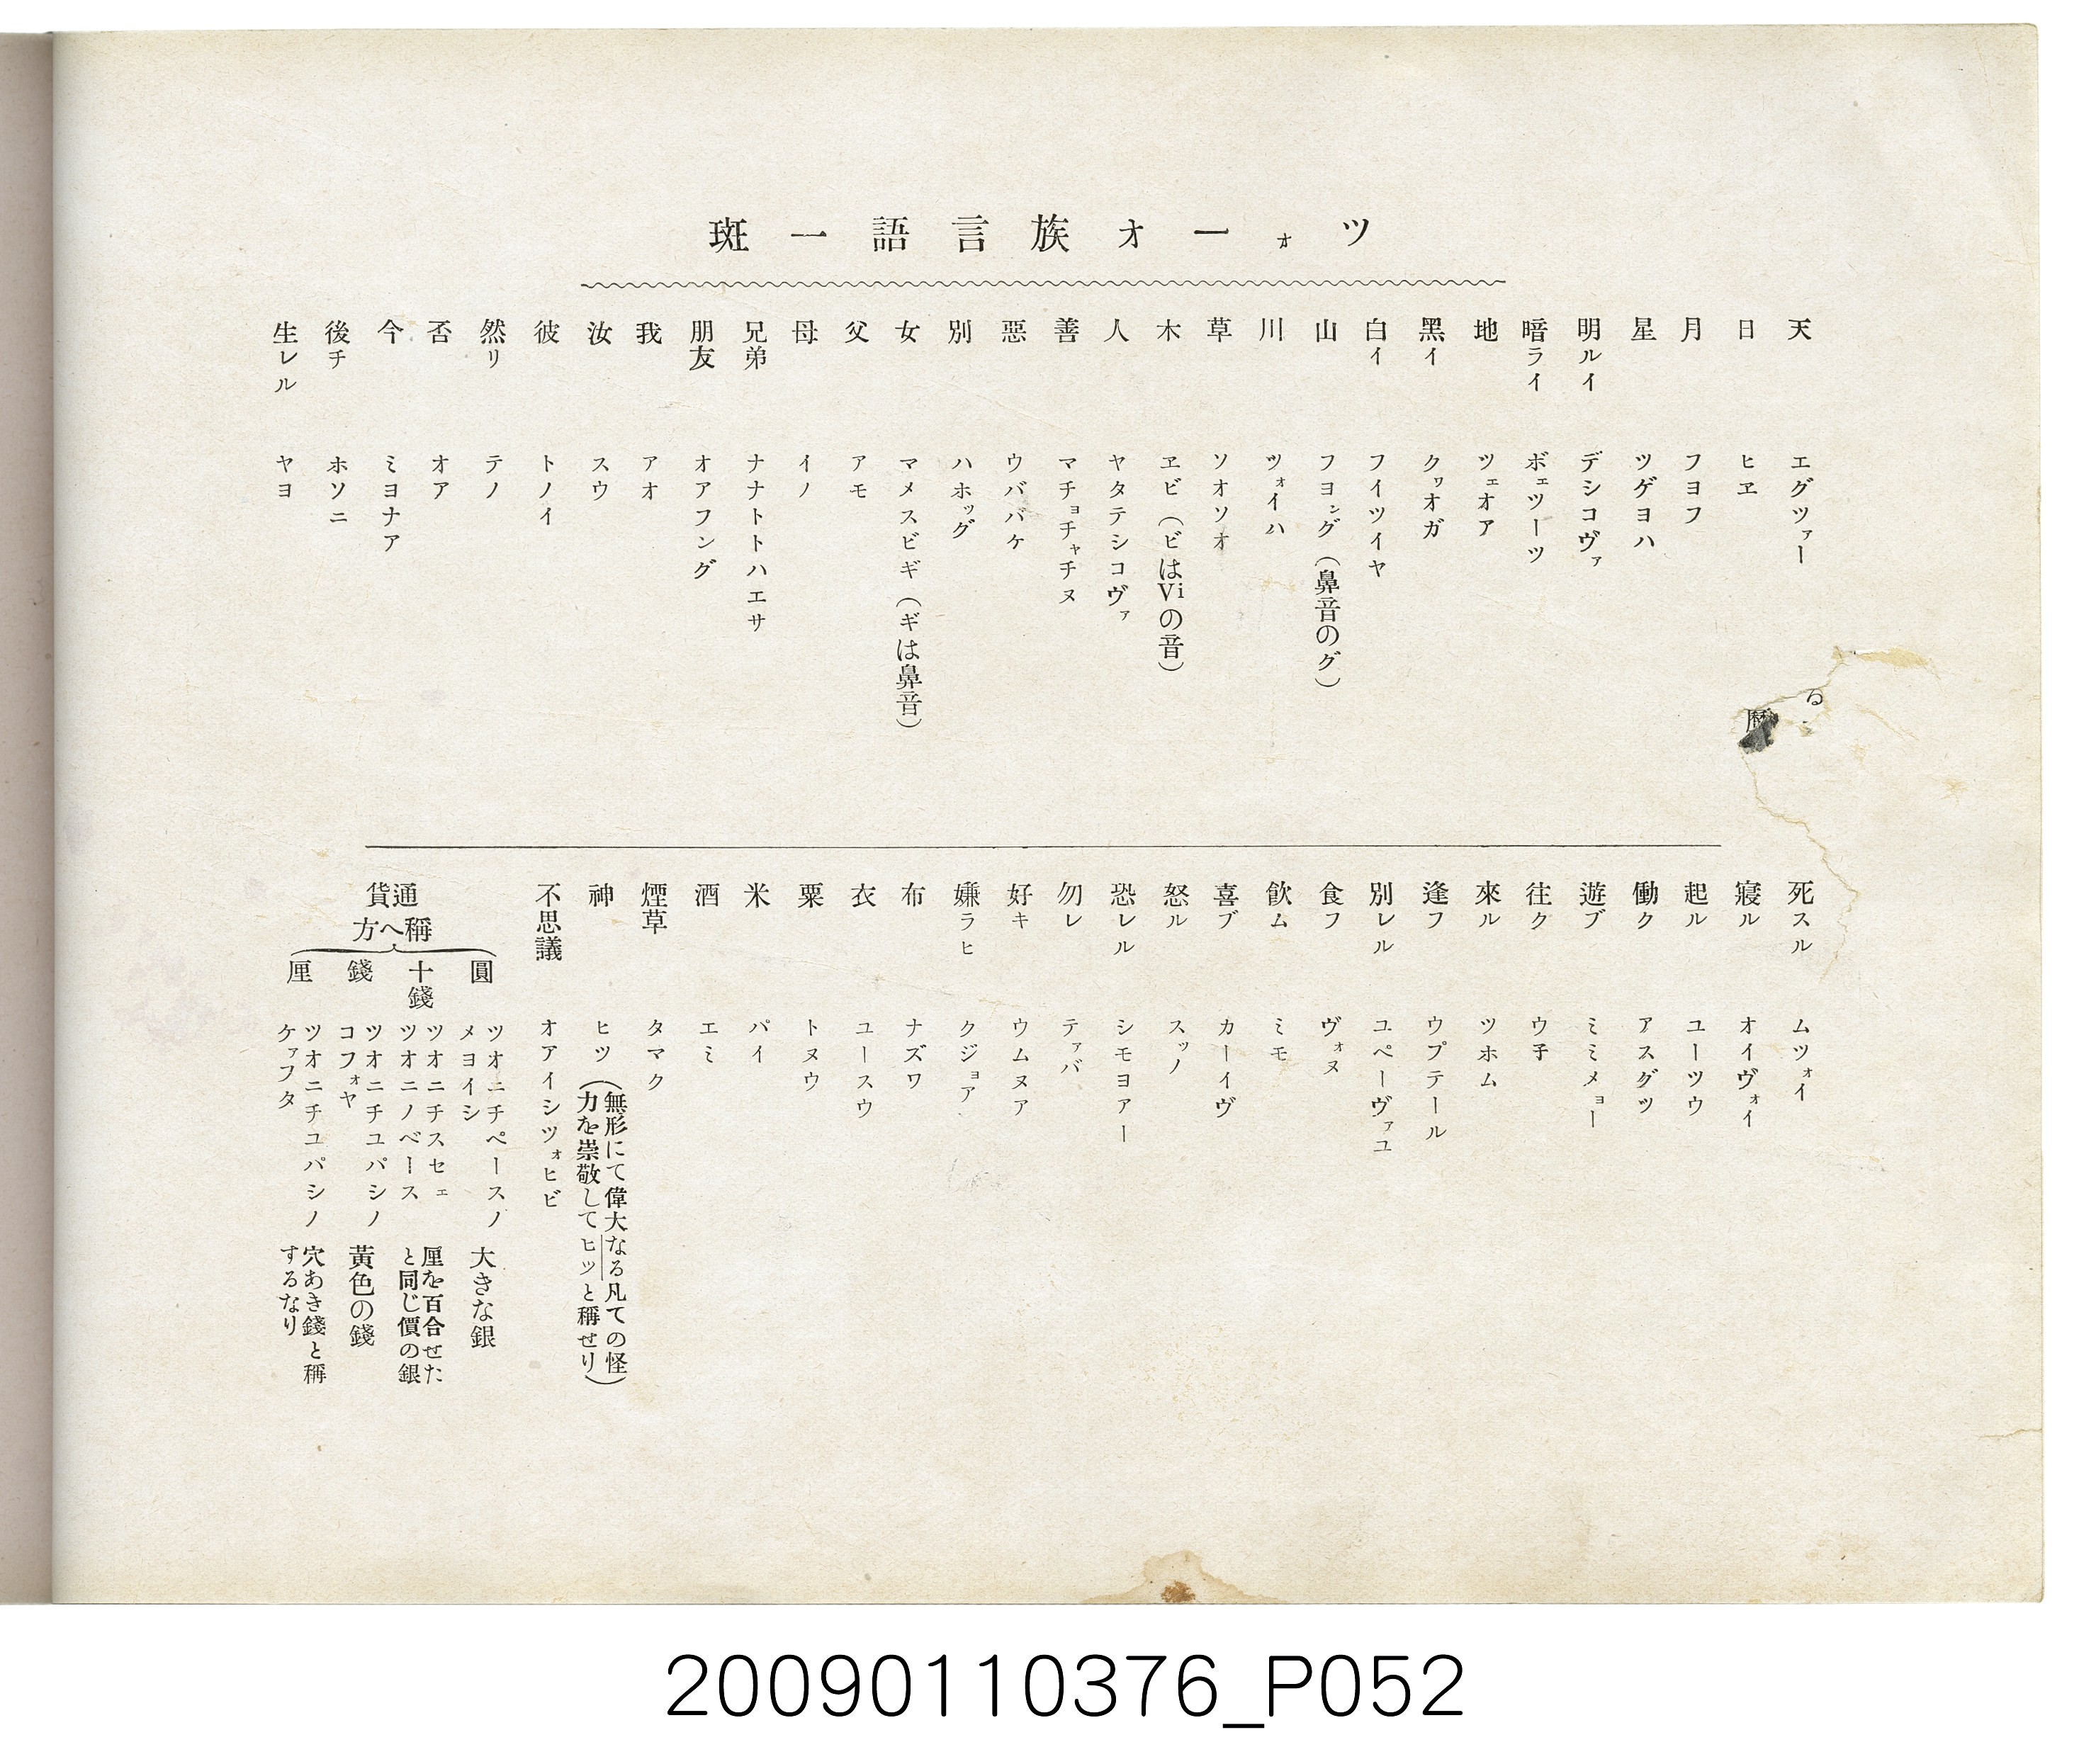 ツォーオ族言語一斑
天 エグツァー
日 ヒヱ
月 フヨフ
星 ツゲヨハ
明ルイ デシコヴァ
暗ライ ボェツーツ
地 ツェオア
黑イ クヮオガ
白イ フイツイヤ
山 フヨング（鼻音のグ）
川 ツォイハ
草 ソオソオ
木 ヱビ（ビはViの音）
人 ヤタテシコヴァ
善 マチョチャチヌ
惡 ウババケ
別 ハホッグ
女 マメスビギ（ギは鼻音）
父 アモ
母 イノ
兄弟 ナナトトハエサ
朋友 オアフング
我 アオ
汝 スウ
彼 トノイ
然リ テノ
否 オア
今 ミヨナア
後チ ホソニ
生レル ヤヨ
る
曆
死スル ムツォイ
寢ル オイヴォイ
起ル ユーツウ
働ク アスグツ
遊ブ ミミメョー
往ク ウ子
來ル ツホム
逢フ ウプテール
別レル ユペーヴァユ
食フ ヴォヌ
飮ム ミモ
喜ブ カーイヴ
怒ル スッノ
恐レル シモヨアー
勿レ テァバ
好キ ウムヌア
嫌ラヒ クジョア
布 ナズワ
衣 ユースウ
粟 トヌウ
米 パイ
酒 エミ
煙草 タマク
神 ヒツ（無形にて偉大なる凡ての怪
力を崇敬してヒッと稱せり）
不思議 オアイシツォヒビ
通貨
稱へ方
圓 ツオニチペースノ
メヨイシ 大きな銀
十錢 ツオニチスセェ
ツオニノベース 厘を百合せた
と同じ價の銀
錢 ツオニチユパシノ
コフォヤ 黃色の錢
厘 ツオニチユパシノ
ケァフタ 穴あき錢と稱
するなり
20090110376_P052